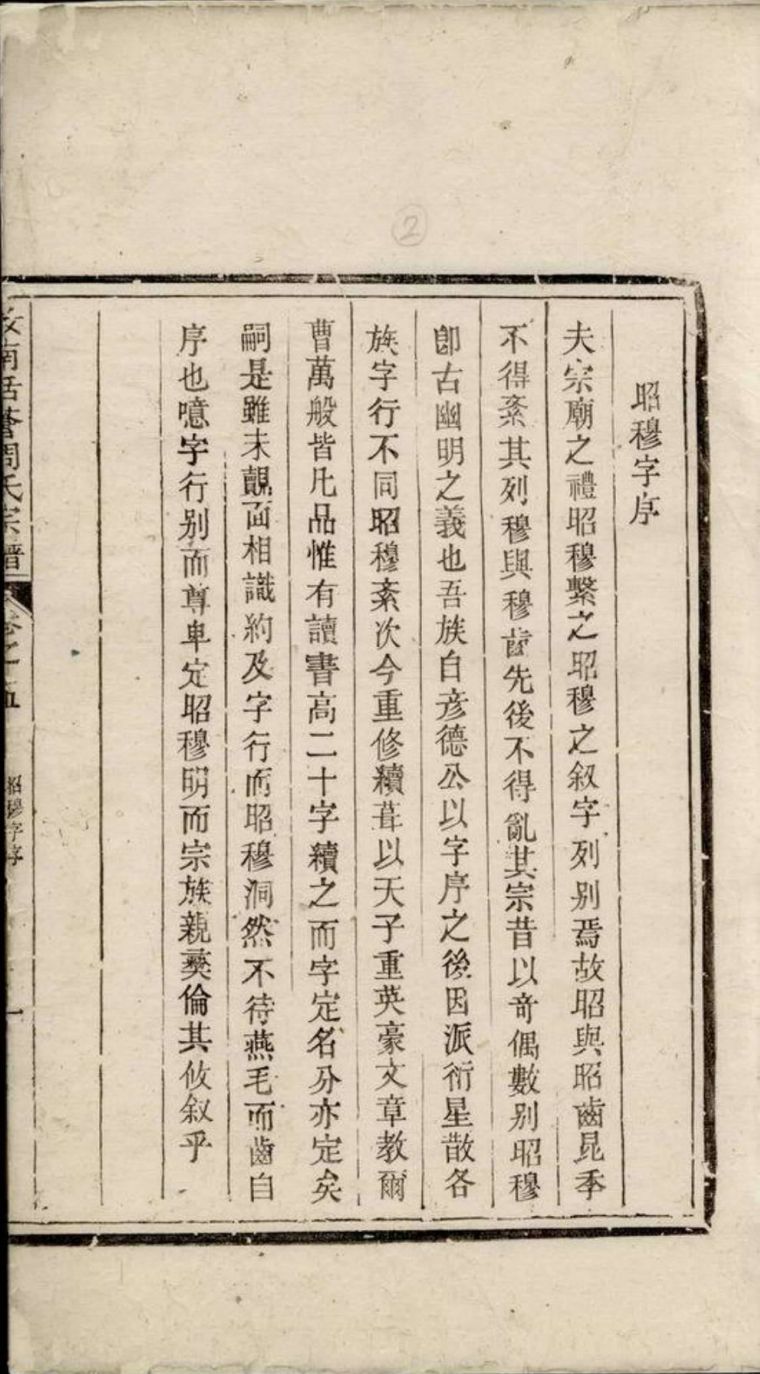 ②
昭穆字序
夫宗廟之禮昭穆繫之昭穆之叙字列别焉故昭與昭齒昆季
不得紊其列穆與穆齒先後不得亂其宗昔以奇偶數别昭穆
卽古幽明之義也吾族自彦德公以字序之後因派衍星散各
族字行不同昭穆紊次今重修續葺以天子重英豪文章教爾
曹萬般皆凡品惟有讀書高二十字續之而字定名分亦定矣
嗣是雖未覿面相識約及字行而昭穆洞然不待燕毛而齒自
序也噫字行别而尊卑定昭穆明而宗族親彛倫其攸叙乎
汝南括蒼周氏宗譜 卷之五 昭穆字序 一